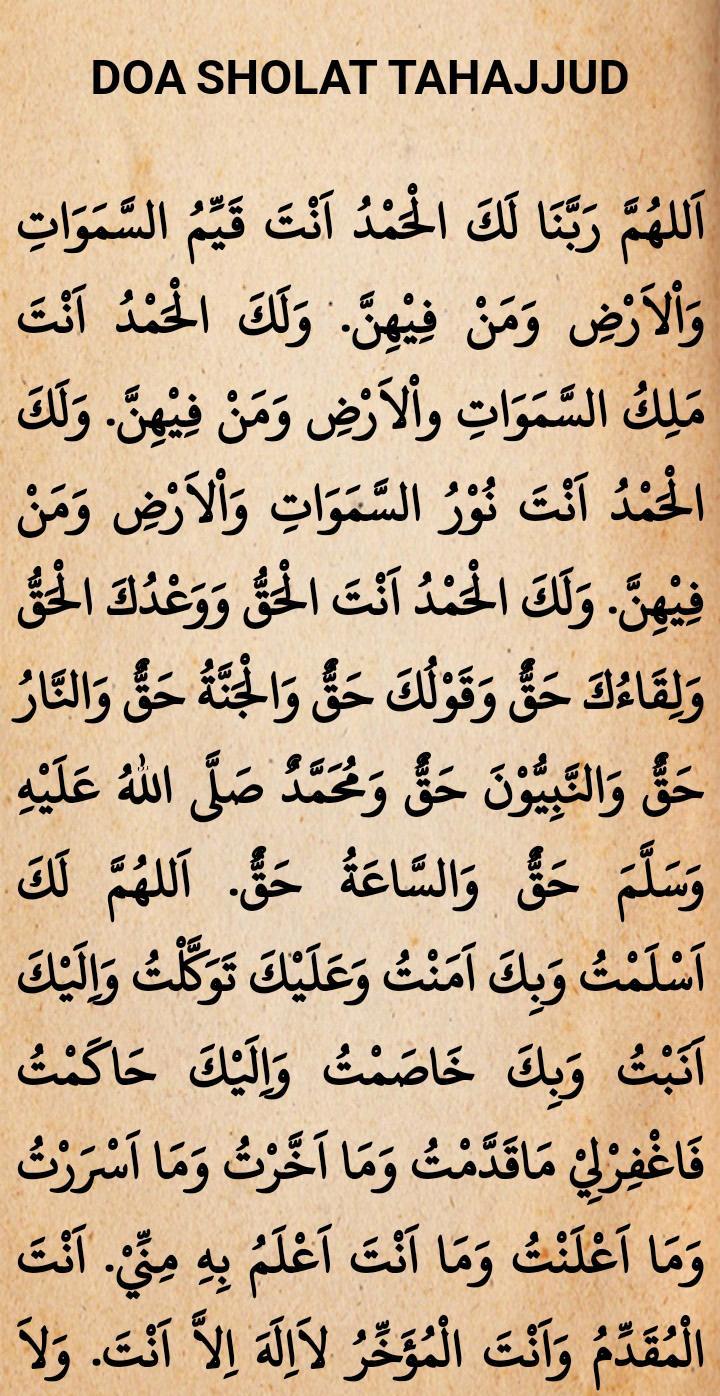 DOA SHOLAT TAHAJJUD
اَللهُمَّ رَبَّنَا لَكَ الْحَمْدُ اَنْتَ قَيِّمُ السَّمَوَاتِ
وَاْلاَرْضِ وَمَنْ فِيْهِنَّ. وَلَكَ الْحَمْدُ اَنْتَ
مَلِكُ السَّمَوَاتِ واْلاَرْضِ وَمَنْ فِيْهِنَّ. وَلَكَ
الْحَمْدُ اَنْتَ نُوْرُ السَّمَوَاتِ وَاْلاَرْضِ وَمَنْ
فِيْهِنَّ. وَلَكَ الْحَمْدُ اَنْتَ الْحَقُّ وَوَعْدُكَ الْحَقُّ
وَلِقَاءُكَ حَقٌّ وَقَوْلُكَ حَقٌّ وَالْجَنَّةُ حَقٌّ وَالنَّارُ
حَقٌّ وَالنَّبِيُّوْنَ حَقٌّ وَمُحَمَّدٌ صَلَّى اللهُ عَلَيْهِ
وَسَلَّمَ حَقٌّ وَالسَّاعَةُ حَقٌّ. اَللهُمَّ لَكَ
اَسْلَمْتُ وَبِكَ اَمَنْتُ وَعَلَيْكَ تَوَكَّلْتُ وَاِلَيْكَ
اَنَبْتُ وَبِكَ خَاصَمْتُ وَاِلَيْكَ حَاكَمْتُ
فَاغْفِرْلِيْ مَاقَدَّمْتُ وَمَا اَخَّرْتُ وَمَا اَسْرَرْتُ
وَمَا اَعْلَنْتُ وَمَا اَنْتَ اَعْلَمُ بِهِ مِنِّيْ. اَنْتَ
الْمُقَدِّمُ وَاَنْتَ الْمُؤَخِّرُ لاَاِلَهَ اِلاَّ اَنْتَ. وَلاَ